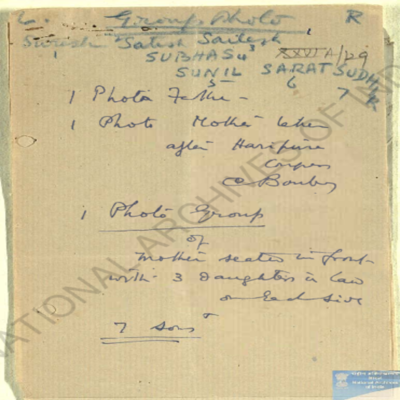 L. Group Photo R
Suresh Satish Sailesh
1
SUBHAS 4 XXVI A/29
SUNIL SARAT SUDHIR
5 6 7 R
1 Photo Father -
1 Photo Mother taken
after Haripura
Congress
@ Bombay
1 Photo Group
of
Mother seated in front
with 3 Daughters in law
on Each side
7 sons
NATIONAL ARCHIVES OF IND